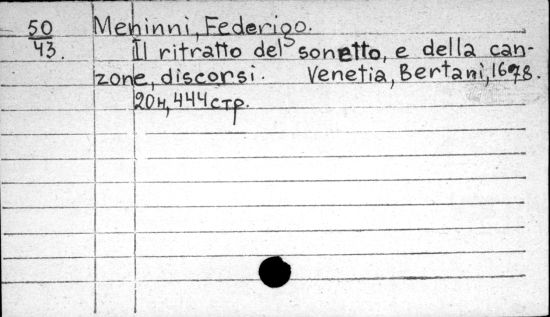 50 Meninni, Federigo.
43. Il ritratto del sonetto, e della can-
zone, discorsi. Venetia, Bertani, 1678.
20н, 444 стр.